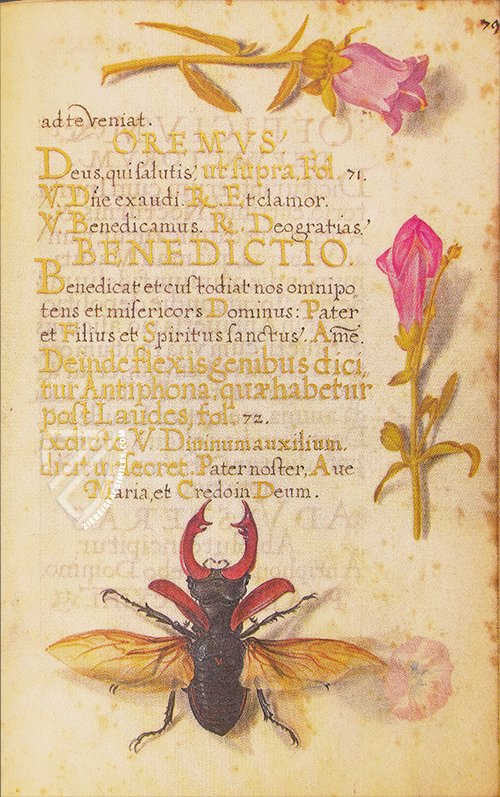 79
ad te veniat.
OREMVS.
Deus, qui salutis, ut supra, Fol. 71.
V. Dñe exaudi. R. Et clamor.
V. Benedicamus. R. Deo gratias.
BENEDICTIO.
Benedicat et custodiat nos omnipo,
tens et misericors Dominus: Pater
et Filius et Spiritus sanctus. Amē.
Deinde flexis genibus dici,
tur Antiphona, quæ habetur
post Laudes, fol. 72.
V. Diuinum auxilium.
dicitur secret. Pater noster, Aue
Maria, et Credo in Deum.